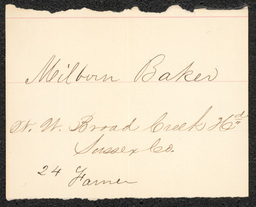 Milborn Baker
N. W. Broad Creek Hd
Sussex Co.
24
Farmer